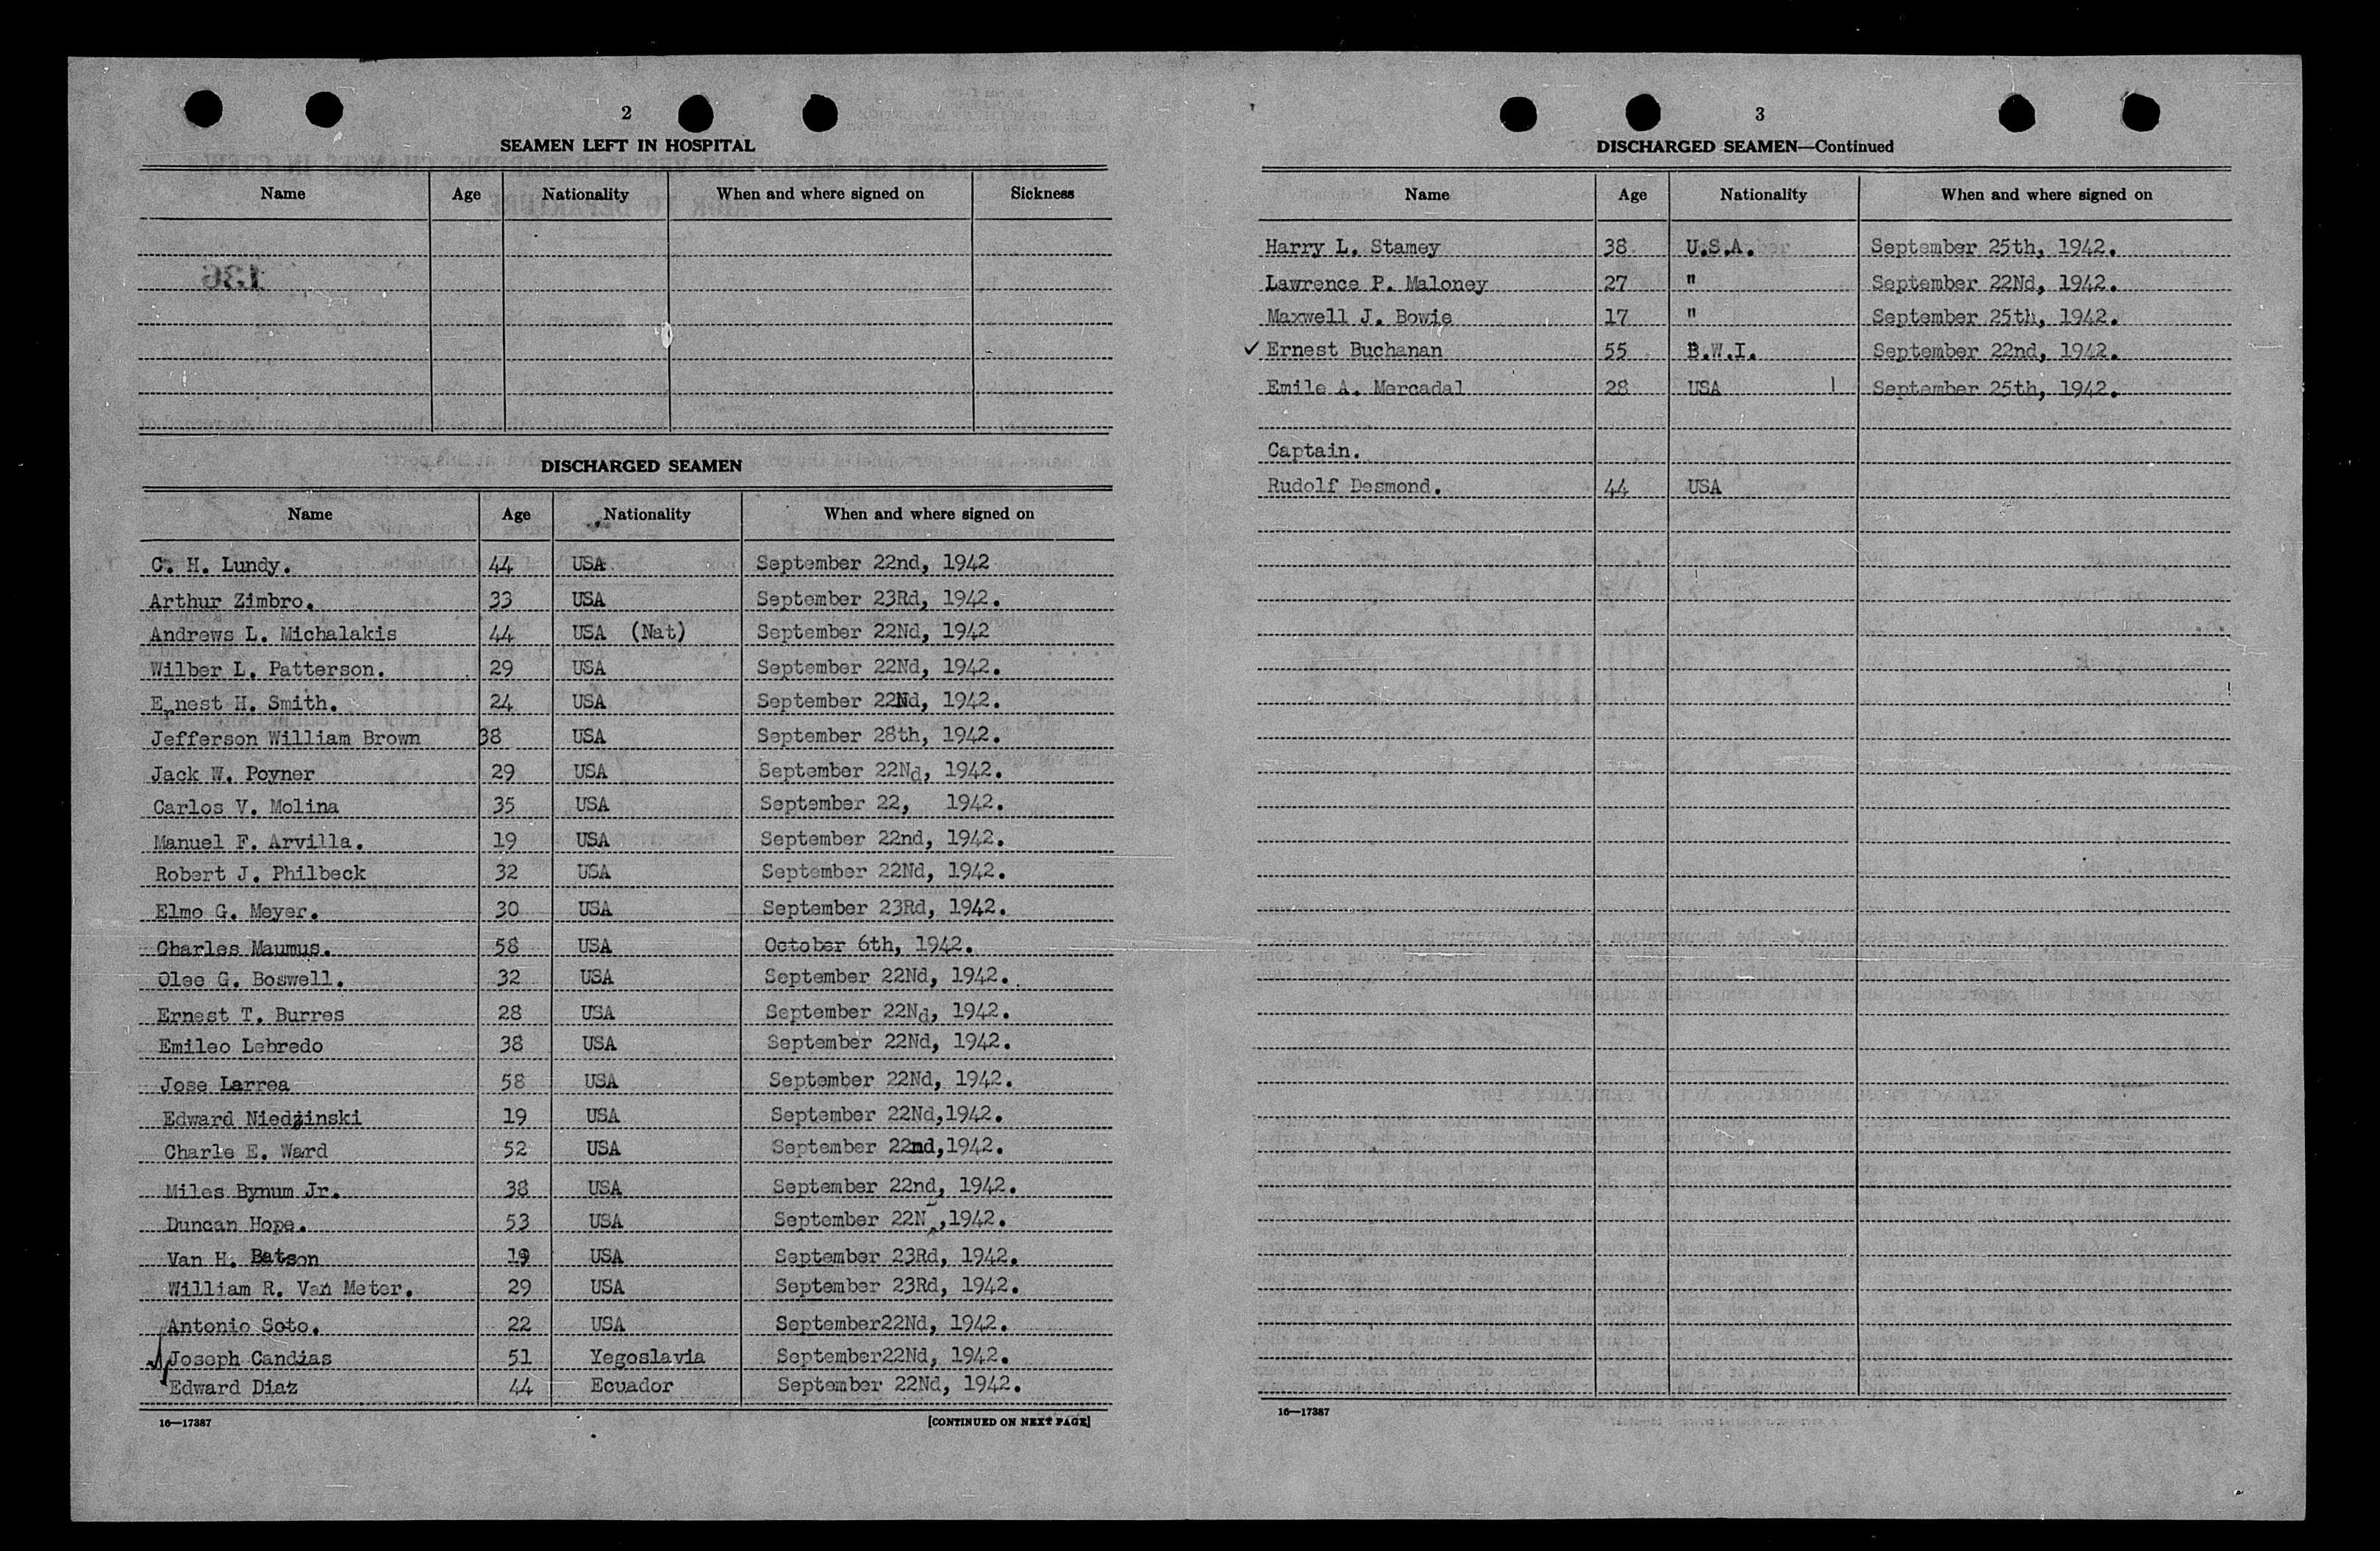 2
SEAMEN LEFT IN HOSPITAL
Name Age Nationality When and where signed on Sickness
136
DISCHARGED SEAMEN
Name Age Nationality When and where signed on
C. H. Lundy. 44 USA September 22nd, 1942
Arthur Zimbro. 33 USA September 23Rd, 1942.
Andrews L. Michalakis 44 USA (Nat) September 22Nd, 1942
Wilber L. Patterson. 29 USA September 22Nd, 1942.
Ernest H. Smith. 24 USA September 22Nd, 1942.
Jefferson William Brown 38 USA September 28th, 1942.
Jack W. Poyner 29 USA September 22Nd, 1942.
Carlos V. Molina 35 USA September 22, 1942.
Manuel F. Arvilla. 19 USA September 22nd, 1942.
Robert J. Philbeck 32 USA September 22Nd, 1942.
Elmo G. Meyer. 30 USA September 23Rd, 1942.
Charles Maumus. 58 USA October 6th, 1942.
Olee G. Boswell. 32 USA September 22Nd, 1942.
Ernest T. Burres 28 USA September 22Nd, 1942.
Emileo Lebredo 38 USA September 22Nd, 1942.
Jose Larrea 58 USA September 22Nd, 1942.
Edward Niedzinski 19 USA September 22Nd,1942.
Charle E. Ward 52 USA September 22nd,1942.
Miles Bynum Jr. 38 USA September 22nd, 1942.
Duncan Hope. 53 USA September 22N ,1942.
Van H. Batson 19 USA September 23Rd, 1942.
William R. Van Meter. 29 USA September 23Rd, 1942.
Antonio Soto. 22 USA September22Nd, 1942.
Joseph Candias 51 Yegoslavia September22Nd, 1942.
Edward Diaz 44 Ecuador September 22Nd, 1942.
16—17387 [CONTINUED ON NEXT PAGE]
3
DISCHARGED SEAMEN—Continued
Name Age Nationality When and where signed on
Harry L. Stamey 38 U.S.A. September 25th, 1942.
Lawrence P. Maloney 27 " September 22Nd, 1942.
Maxwell J. Bowie 17 " September 25th, 1942.
✓ Ernest Buchanan 55 B.W.I. September 22nd, 1942.
Emile A. Mercadal 28 USA September 25th, 1942.
Captain.
Rudolf Desmond. 44 USA
16—17387